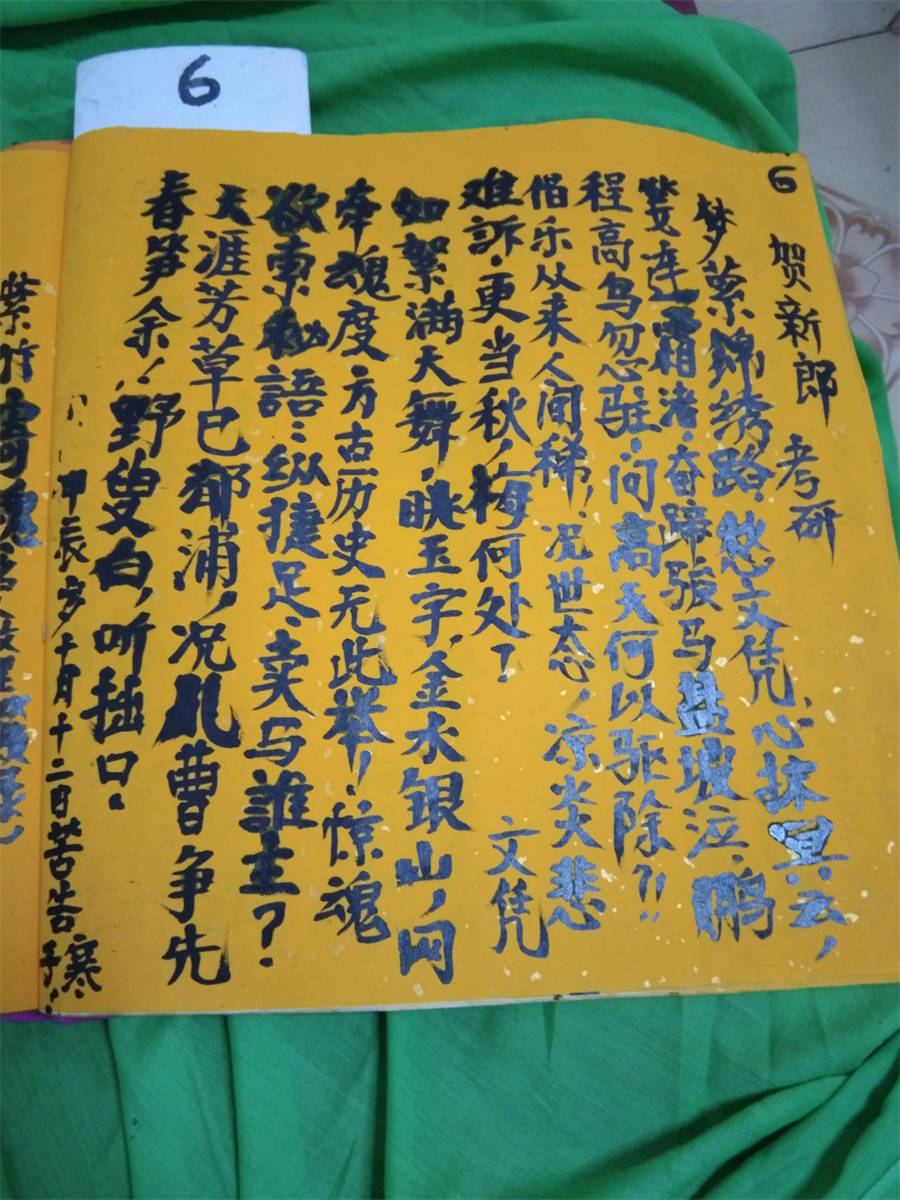 6
6 贺新郎 考研
梦萦锦绣路，愁文凭，心抹黑云，
凳连霜渚。奋蹄骏马盐坡泣，鹏
程高鸟忽驻。问高天何以驱除？！！
倡乐从来人间稀，况世态，凉炎悲
难訴。更当秋，梅何处？ 文凭
如絮满天舞，眺玉宇，金水银山，网
牵魂度。万古历史无此举！惊魂
欲东秘語：纵捷足、卖马誰主？
天涯芳草已郁浦，况凡曹争先
春笋余！野叟白，听拙口。
甲辰岁十月十二日苦告寒